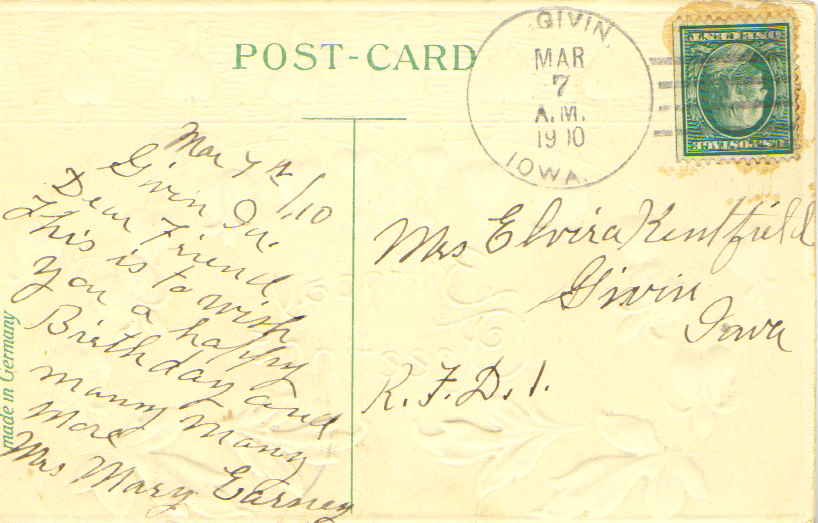 POST-CARD
GIVIN,
MAR
7
A.M.
1910
IOWA.
U.S. POSTAGE
Mar 7th/10
Givin Ia.
Dear Friend
This is to wish
you a happy
Birthday and
many many
more
Mrs Mary Earney
Mrs Elvira Kentfield
Givin
Iowa
R.F.D.1.
made in Germany